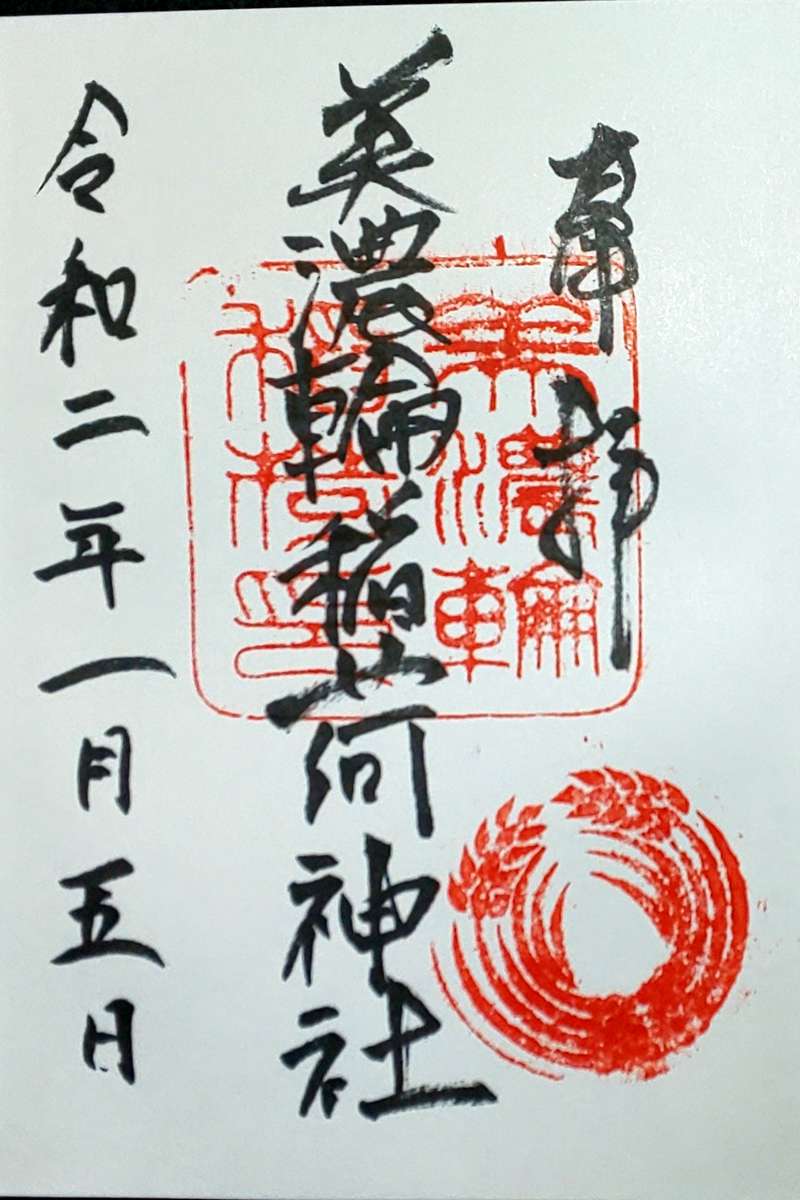 奉拝
美濃輪稲荷神社
令和二年一月五日
美濃輪